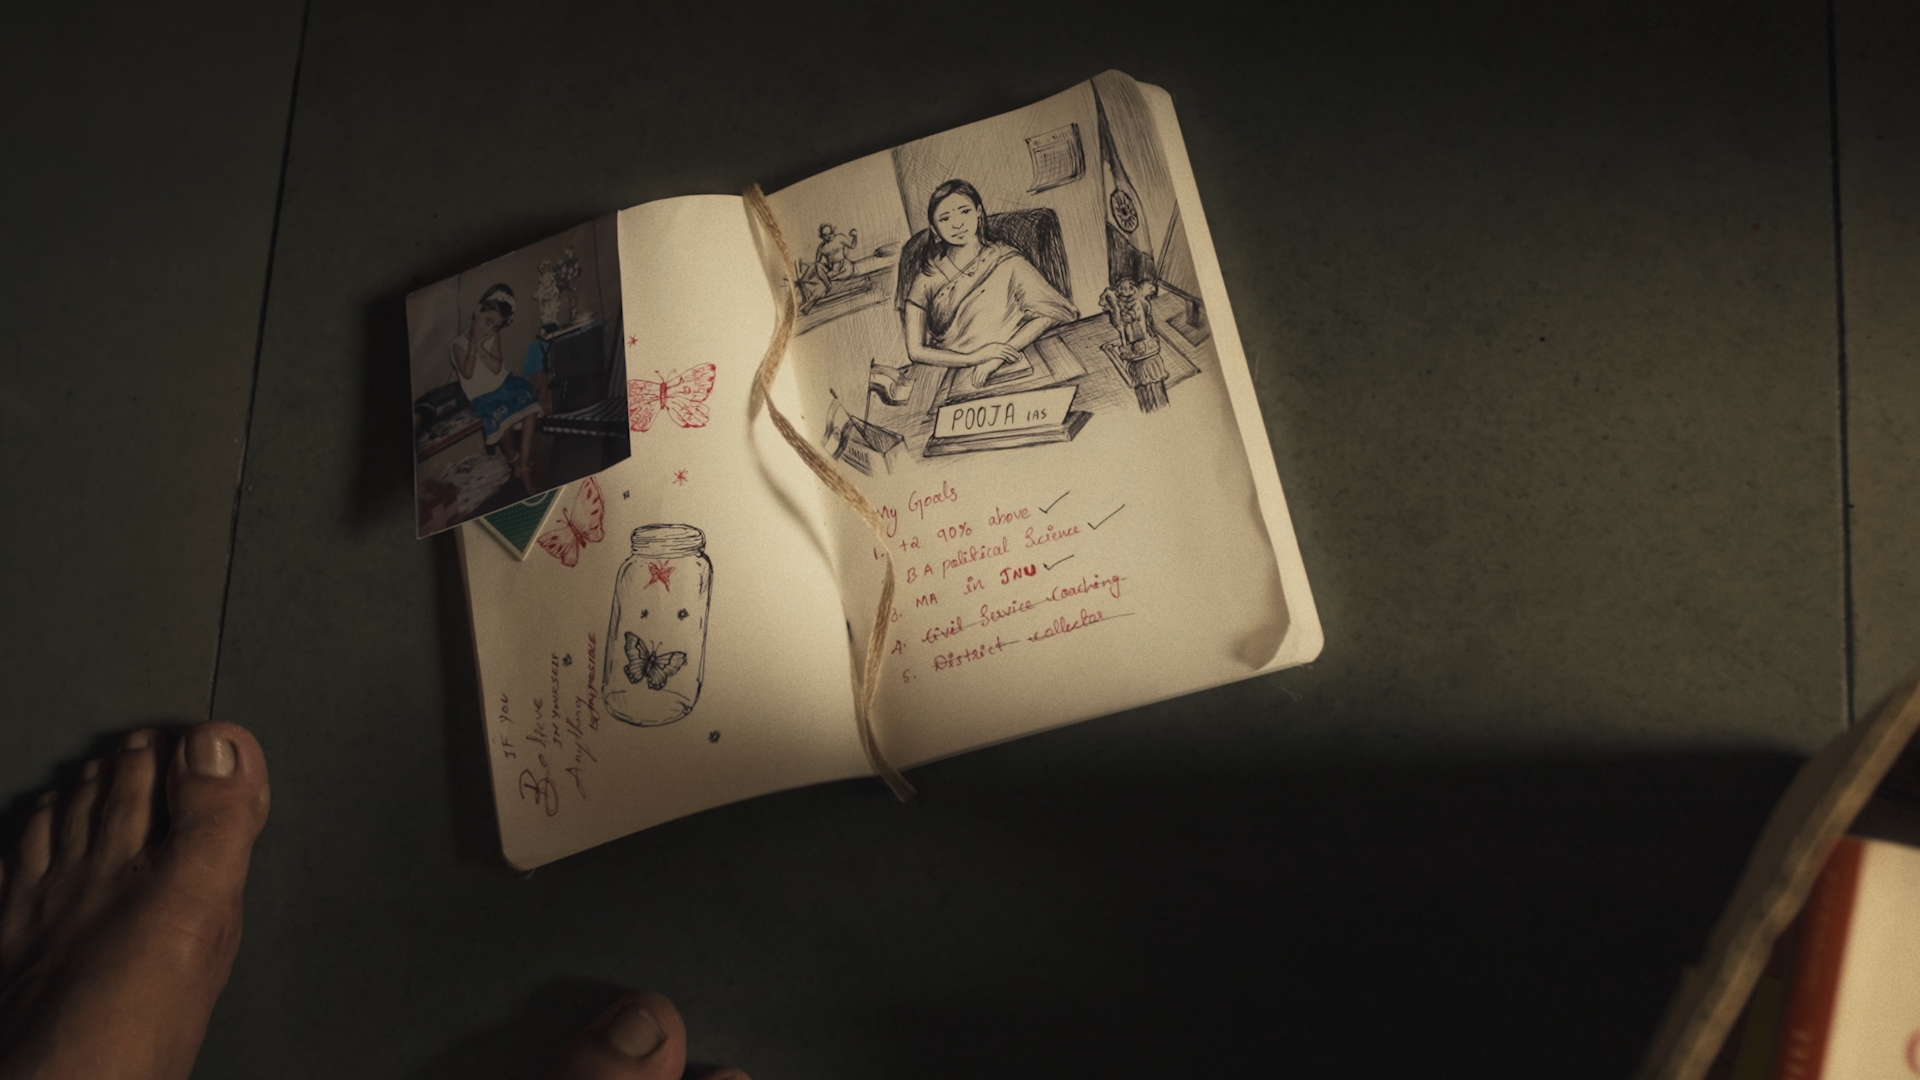 IF YOU
Believe
IN YOURSELF
Anything
POOJA IAS
INDIA
My Goals
1. +2 90% above
BA political Science
3. MA in JNU
4. Civil Service Coaching
5. District collector